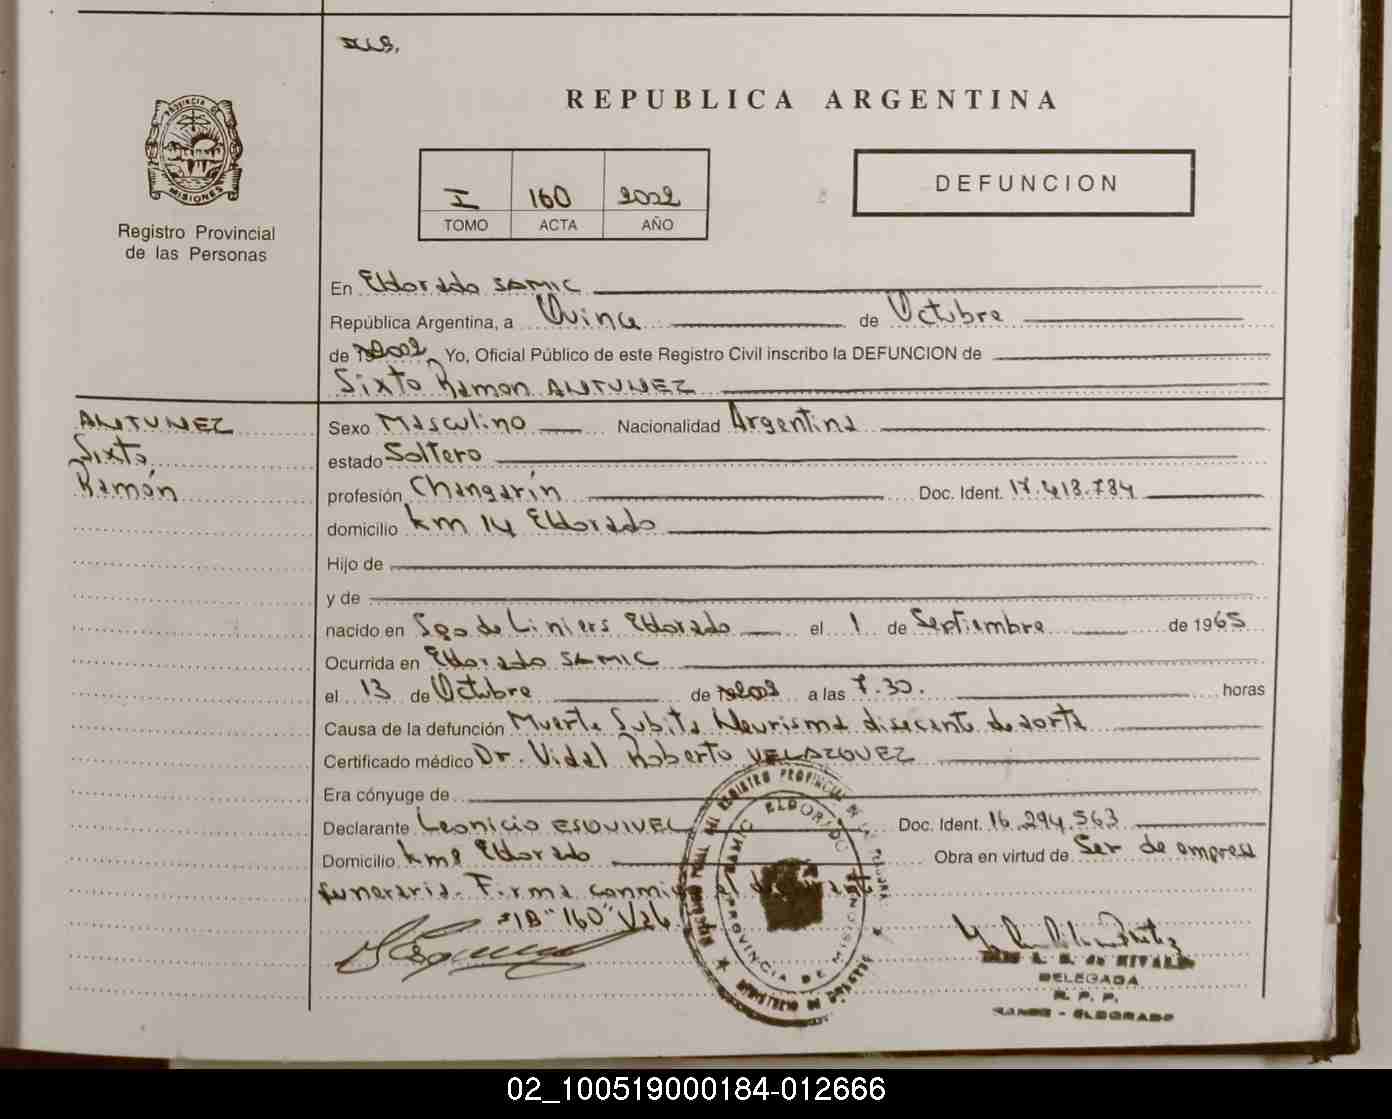 REPUBLICA ARGENTINA
PROVINCIA DE
MISIONES
Registro Provincial
de las Personas
I 160 2002
TOMO ACTA AÑO
DEFUNCION
En Eldorado SAMIC
República Argentina, a Quince de Octubre
de 2002 Yo, Oficial Público de este Registro Civil inscribo la DEFUNCION de
Sixto Ramon ANTUNEZ
ANTUNEZ
Sixto
Ramón
Sexo Masculino Nacionalidad Argentina
estado Soltero
profesión Changarín Doc. Ident. 17.413.784
domicilio km 14 Eldorado
Hijo de
y de
nacido en Sgo de Liniers Eldorado el 1 de Septiembre de 1965
Ocurrida en Eldorado SAMIC
el 13 de Octubre de 2002 a las 7.30. horas
Causa de la defunción Muerte Subita Neurisma disecante de aorta
Certificado médico Dr. Vidal Roberto VELAZQUEZ
Era cónyuge de
Declarante Leonicio ESQUIVEL Doc. Ident. 16.294.563
Domicilio km 8 Eldorado Obra en virtud de Ser de empresa
funeraria. Firma conmigo el
"160"
REGISTRO PROVINCIAL DE LAS
SAMIC ELDORADO
PROVINCIA DE MISIONES
MINISTERIO DE
DELEGADA
R. P. P.
SAMIC - ELDORADO
02_100519000184-012666